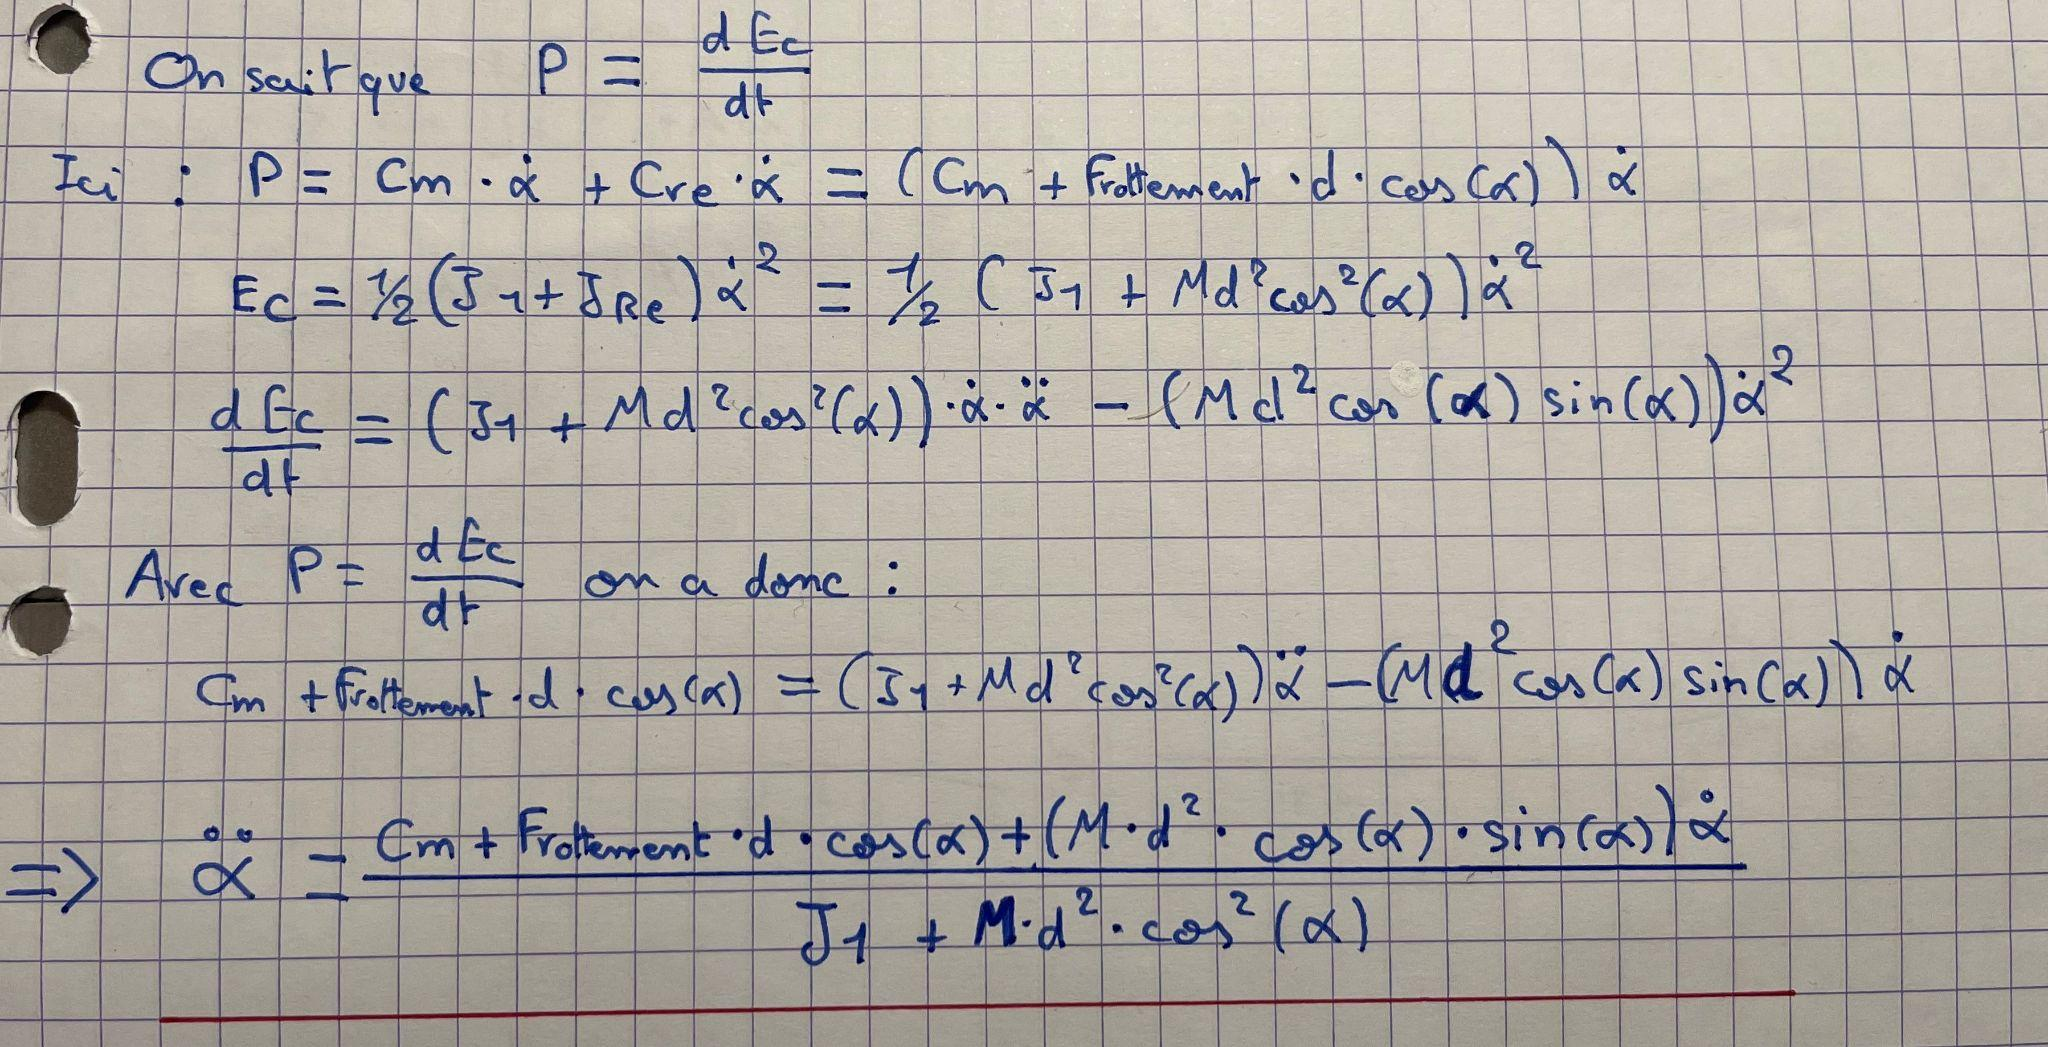 On sait que P = dEc/dt
Ici : P = Cm · α̇ + Cre · α̇ = (Cm + Frottement · d · cos(α)) α̇
Ec = 1/2 (J1 + JRe) α̇² = 1/2 (J1 + Md²cos²(α)) α̇²
dEc/dt = (J1 + Md²cos²(α)) · α̇ · α̈ - (Md² cos(α) sin(α)) α̇²
Avec P = dEc/dt on a donc :
Cm + Frottement · d · cos(α) = (J1 + Md²cos²(α)) α̈ - (Md² cos(α) sin(α)) α̇
=> α̈ = (Cm + Frottement · d · cos(α) + (M · d² · cos(α) · sin(α)) α̇) / (J1 + M · d² · cos²(α))